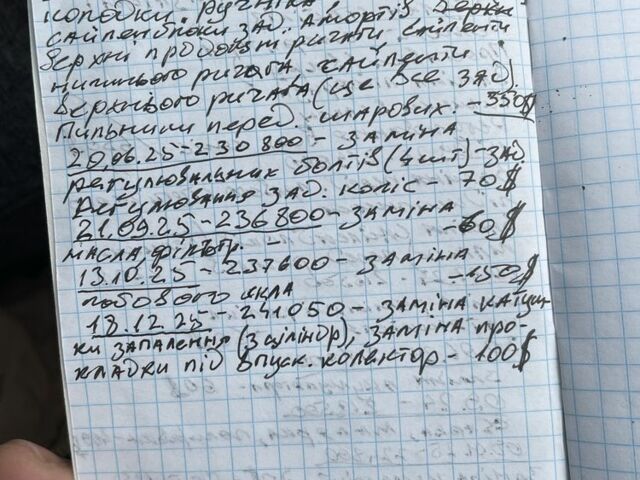 колодки. ручніка
сайленблоки зад. амортів, верхи
верхні продольні ричаги, сайленти
нижнього ричага, сайленти
верхнього ричага (це все зад).
Пильники перед. шарових. - 350$
20.06.25 - 230 800 - заміна
регулювальних болтів (4 шт) - зад
Регулювання зад. коліс - 70$
21.09.25 - 236800 - заміна
масла, фільтр. - 60$
13.10.25 - 237600 - заміна
лобового скла - 150$
18.12.25 - 241050 - заміна катуш-
ки запалення (3 ціліндр), заміна про-
кладки під впуск. колектор - 100$